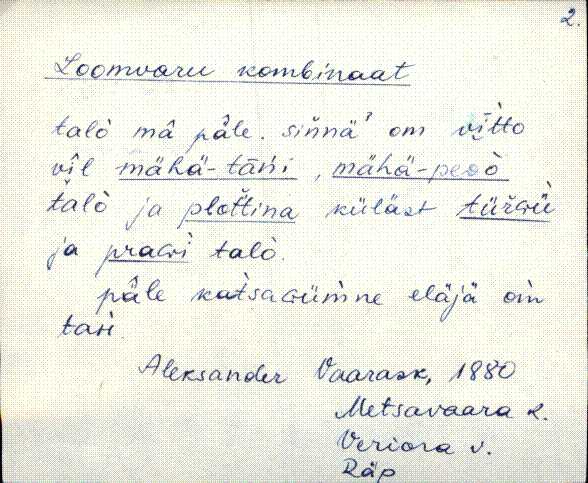 2.
Loomvaru kombinaat
talò mâ päle. sinnä² om vītto
vīl mähä-tāńi, mähä-peoò
talò ja plot́tina küläst türwü
ja prawi talò.
päle katsawümne eläjä om
tan.
Aleksander Vaarask, 1880
Metsavaara k.
Veriora v.
Räp